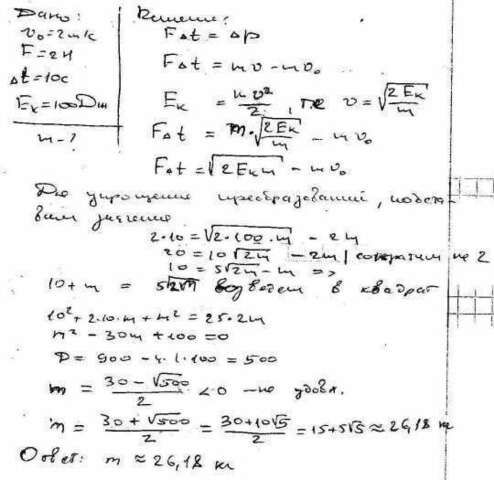 Дано:
v₀ = 2 м/с
F = 2Н
Δt = 10с
Eк = 100Дж
m - ?
Решение:
FΔt = Δp
FΔt = mv - mv₀
Eк = mv²/2, где v = √(2Eк/m)
FΔt = m·√(2Eк/m) - mv₀
FΔt = √(2Eкm) - mv₀
Для упрощения преобразований, подста-
вим значения
2·10 = √(2·100·m) - 2m
20 = 10√(2m) - 2m | сократим на 2
10 = 5√(2m) - m =>
10 + m = 5√(2m) возведем в квадрат
10² + 2·10·m + m² = 25·2m
m² - 30m + 100 = 0
D = 900 - 4·1·100 = 500
m = (30 - √500)/2 < 0 - не удовл.
m = (30 + √500)/2 = (30 + 10√5)/2 = 15 + 5√5 ≈ 26,18 кг
Ответ: m ≈ 26,18 кг